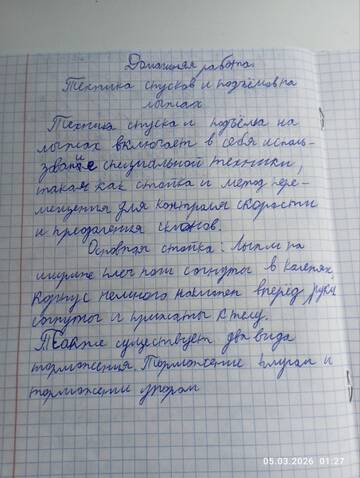 Домашняя работа.
Техника спусков и подъёмов на
лыжах
Техника спуска и подъёма на
лыжах включает в себя исполь-
зование специальной техники,
такая как стойка и метод пере-
мещения для контроля скорости
и преодаления склонов.
Основная стойка: Лыжи на
ширине плеч ноги согнуты в коленях,
корпус немного наклонен вперед руки
согнуты и прижаты к телу.
Также существует два вида
торможения. Торможение плугом и
торможение упором
05.03.2026 01:27